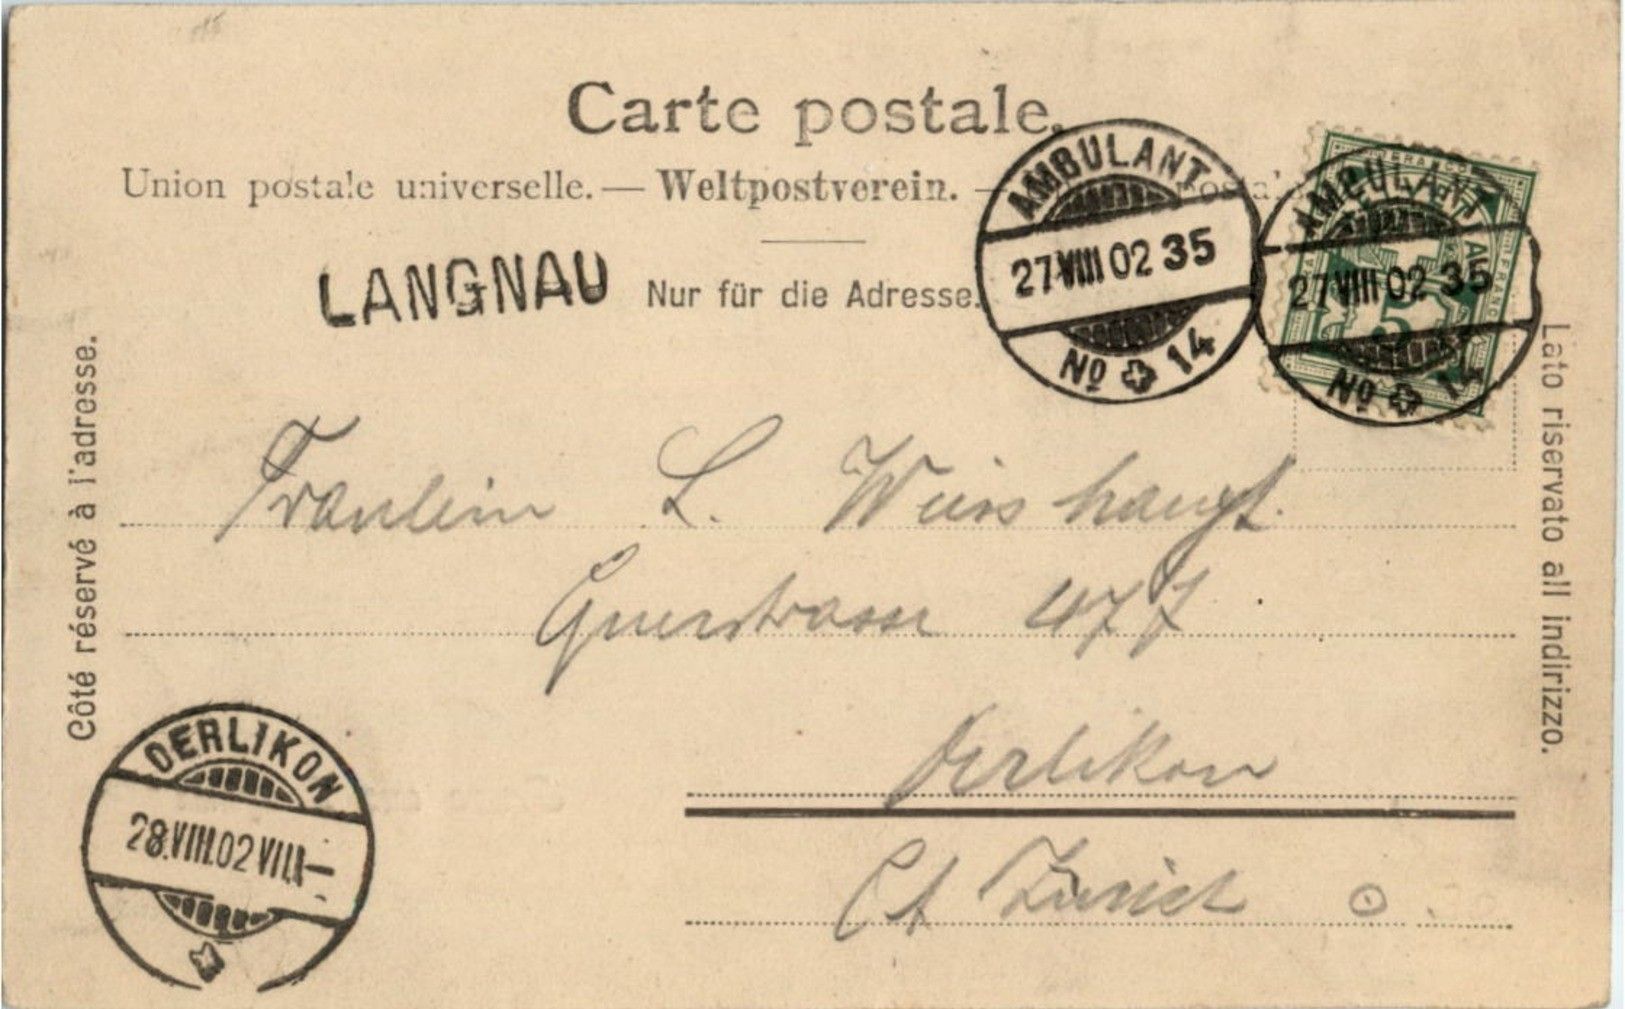 Carte postale.
Union postale universelle. — Weltpostverein. —
AMBULANT
27 VIII 02 35
No 14
AMBULANT
27 VIII 02 35
No 14
FRANCO
5
LANGNAU
Nur für die Adresse.
Côté réservé à l'adresse.
Lato riservato all indirizzo.
Fräulein L.
Querstrasse 477
Oerlikon
Ct Zürich
OERLIKON
28.VIII.02 VIII—